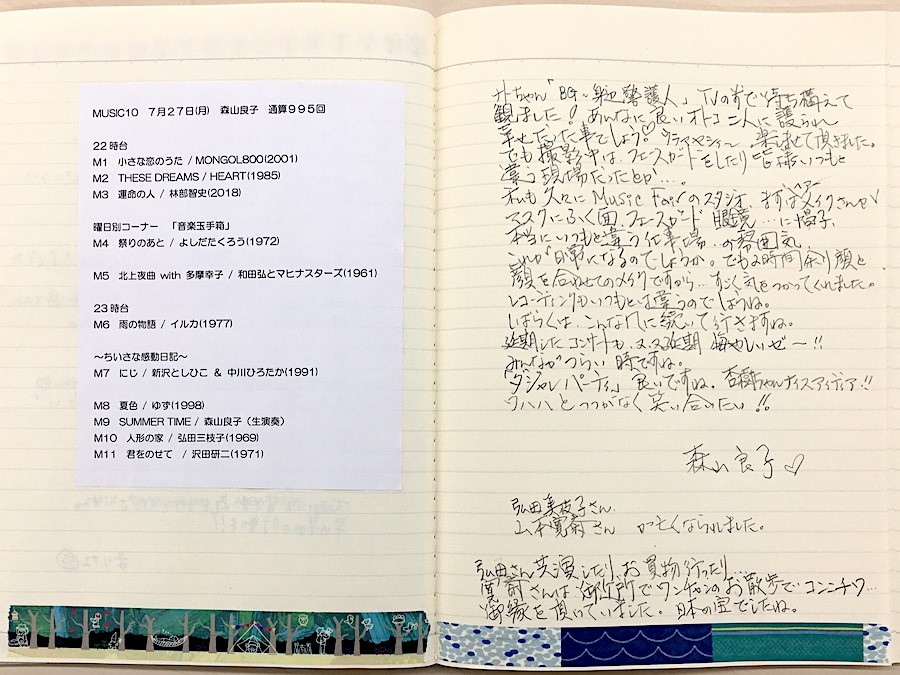 MUSIC10　7月27日(月)　森山良子　通算995回
22時台
M1　小さな恋のうた / MONGOL800(2001)
M2　THESE DREAMS / HEART(1985)
M3　運命の人 / 林部智史(2018)
曜日別コーナー　「音楽玉手箱」
M4　祭りのあと / よしだたくろう(1972)
M5　北上夜曲 with 多摩幸子 / 和田弘とマヒナスターズ(1961)
23時台
M6　雨の物語 / イルカ(1977)
～ちいさな感動日記～
M7　にじ / 新沢としひこ ＆ 中川ひろたか(1991)
M8　夏色 / ゆず(1998)
M9　SUMMER TIME / 森山良子（生演奏）
M10　人形の家 / 弘田三枝子(1969)
M11　君をのせて　/ 沢田研二(1971)
ちゃん「BG～身辺警護人」TVの前で待ち構えて
観ました！あんなに良いオトコ二人に護られ
幸せだった事でしょう♡ウラヤマシィ～ 楽しませて頂きました。
でも撮影中は、フェースガードをしたり皆様いつもと
違う現場だったとか…。
私も久々に Music Fairのスタジオ、まずはヘアーメイクさんが
マスクに 面、フェースガード 眼鏡…に帽子、
本当にいつもと違う仕事場の雰囲気、
これが日常になるのでしょうか。でも2時間余り顔と
顔を合わせてのメイクですから…すごく気をつかってくれました。
レコーディングもいつもとは違うのでしょうね。
しばらくは、こんな風に続いて行きますね。
延期したコンサートも、又々延期 悔やしいゼー!!
みんながつらい時ですね。
「ダジャレパーティ」良いですね。杏樹ちゃんナイスアイディア!!
ワハハとつつがなく笑い合いたい!!
森山良子♡
弘田美枝子さん
山本寛斎さん が亡くなられました。
弘田さん共演したり、お買物行ったり…
寛斎さんは御近所でワンチャンのお散歩でコンニチワ…
御縁を頂いていました。日本の宝でしたね。